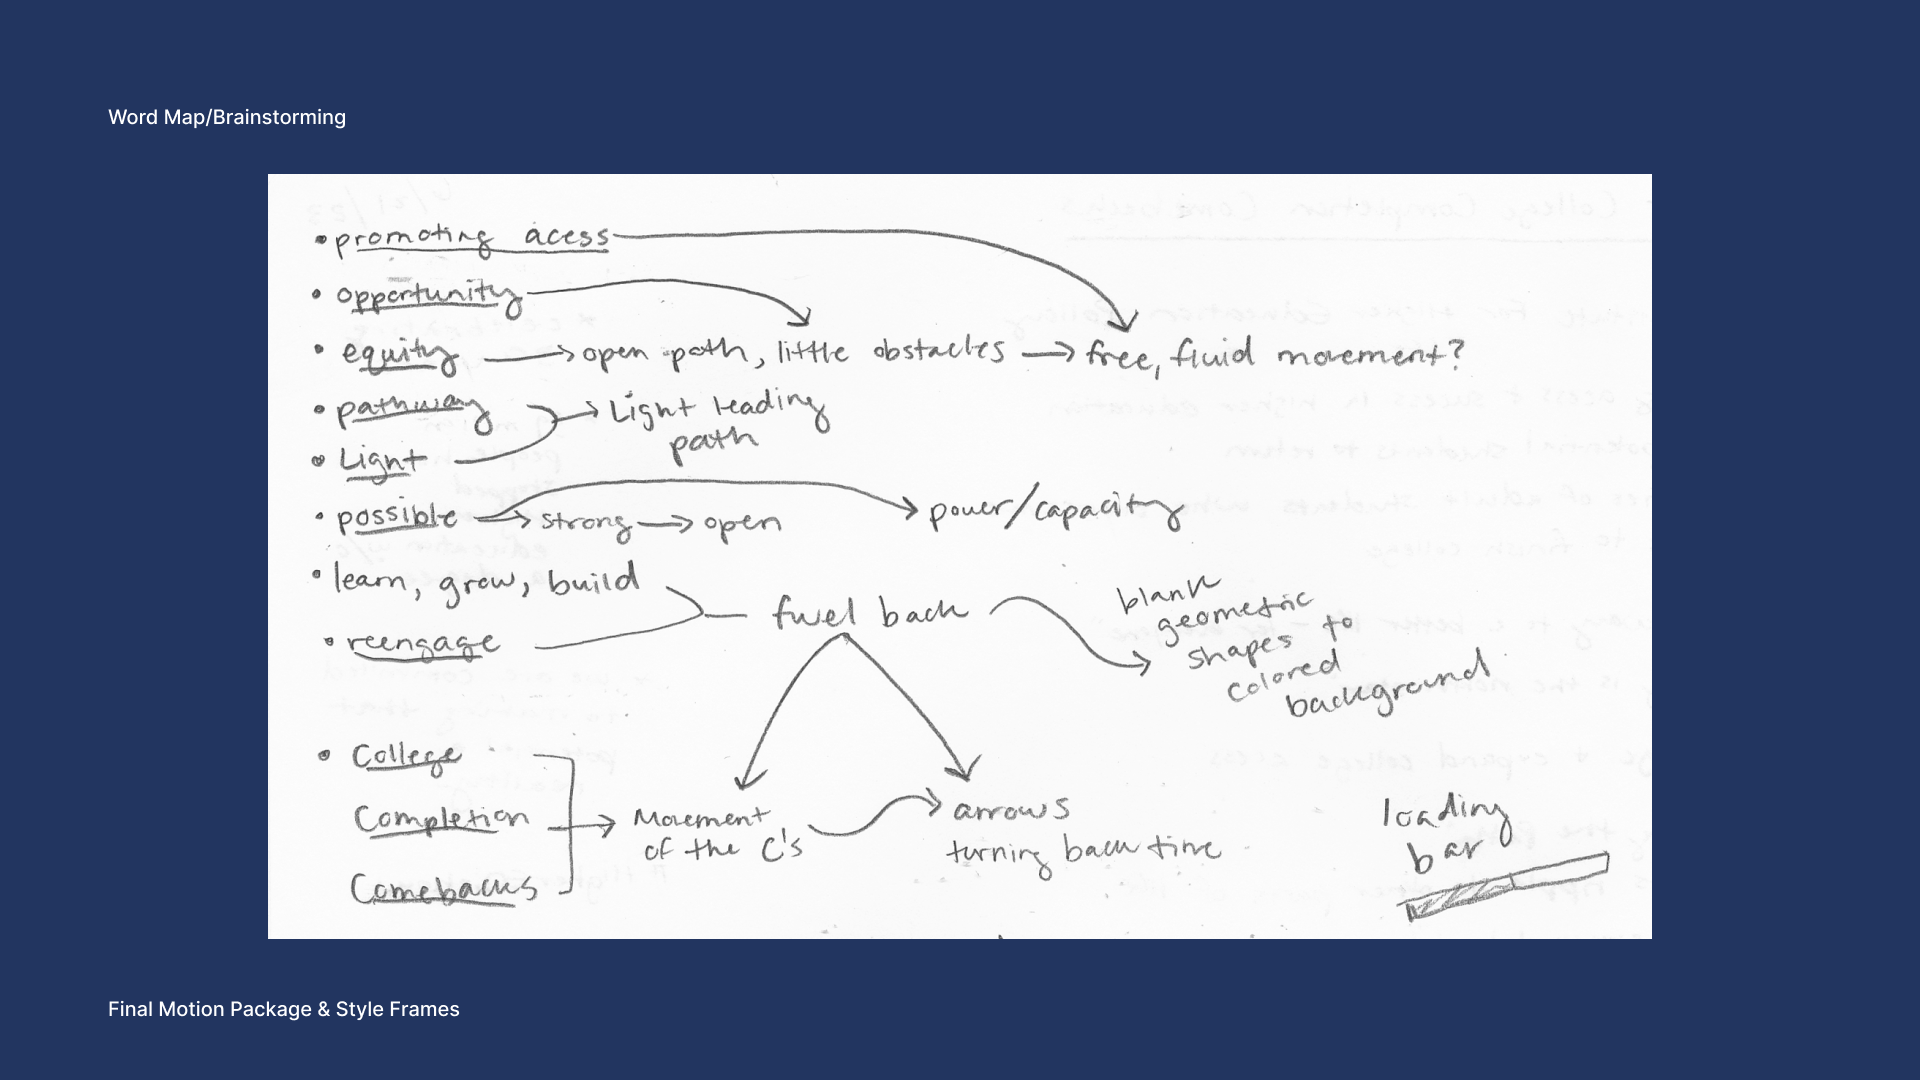 Word Map/Brainstorming
• promoting acess
• opportunity
• equity → open path, little obstacles → free, fluid movement?
• pathway → Light leading
path
• Light
• possible → strong → open
power/capacity
• learn, grow, build
fuel back
• reengage
blank
geometric
shapes to
colored
background
• College
Completion
Comebacks
Movement
of the C's
arrows
turning back time
loading
bar
Final Motion Package & Style Frames